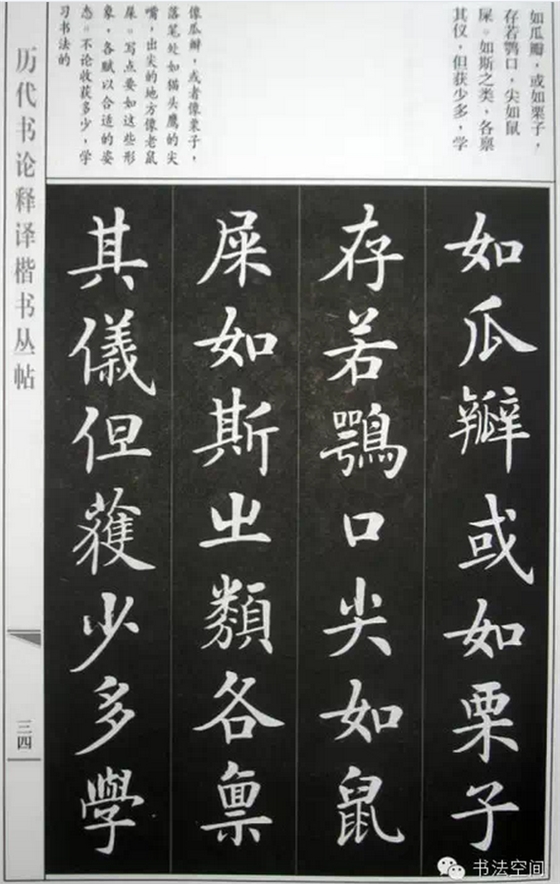 如瓜瓣，或如栗子，
存若鹗口，尖如鼠
屎。如斯之类，各禀
其仪，但获少多，学
像瓜瓣，或者像栗子，
落笔处如猫头鹰的尖
嘴，出尖的地方像老鼠
屎。写点要如这些形
象，各赋以合适的姿
态。不论收获多少，学
习书法的
如瓜瓣或如栗子
存若鶚口尖如鼠
屎如斯之類各禀
其儀但獲少多學
历代书论释译楷书丛帖
三四
书法空间